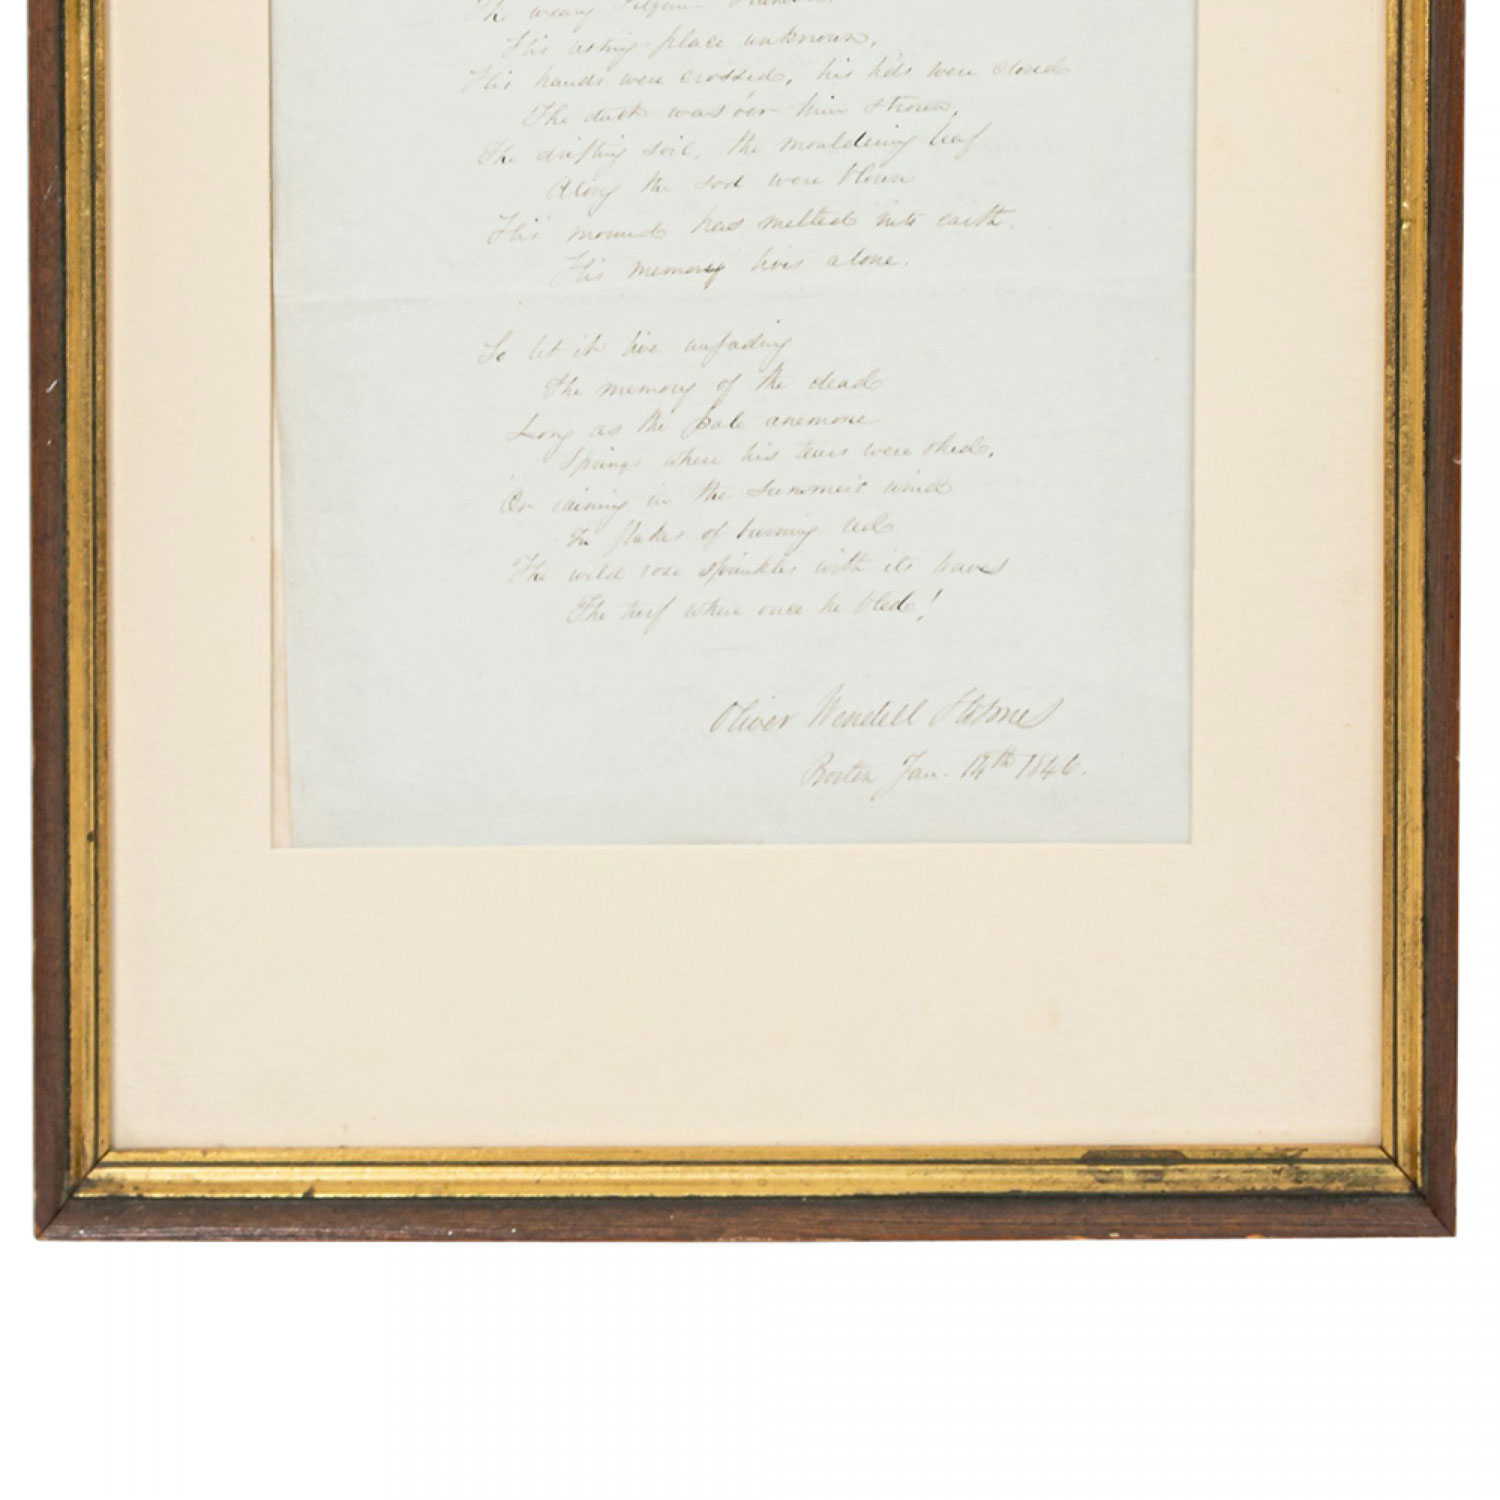 The weary Pilgrim slumbers,
His resting place unknown,
His hands were crossed, his lids were closed
The dust was o'er him strown,
The drifting soil, the mouldering leaf
Along the sod were blown
His mound has melted into earth,
His memory lives alone.
So let it live unfading
The memory of the dead
Long as the pale anemone
Springs where his tears were shed,
Or raining in the summer's wind
In flakes of burning red
The wild rose sprinkles with its leaves
The turf where once he bled!
Oliver Wendell Holmes
Boston Jan. 14th 1846.